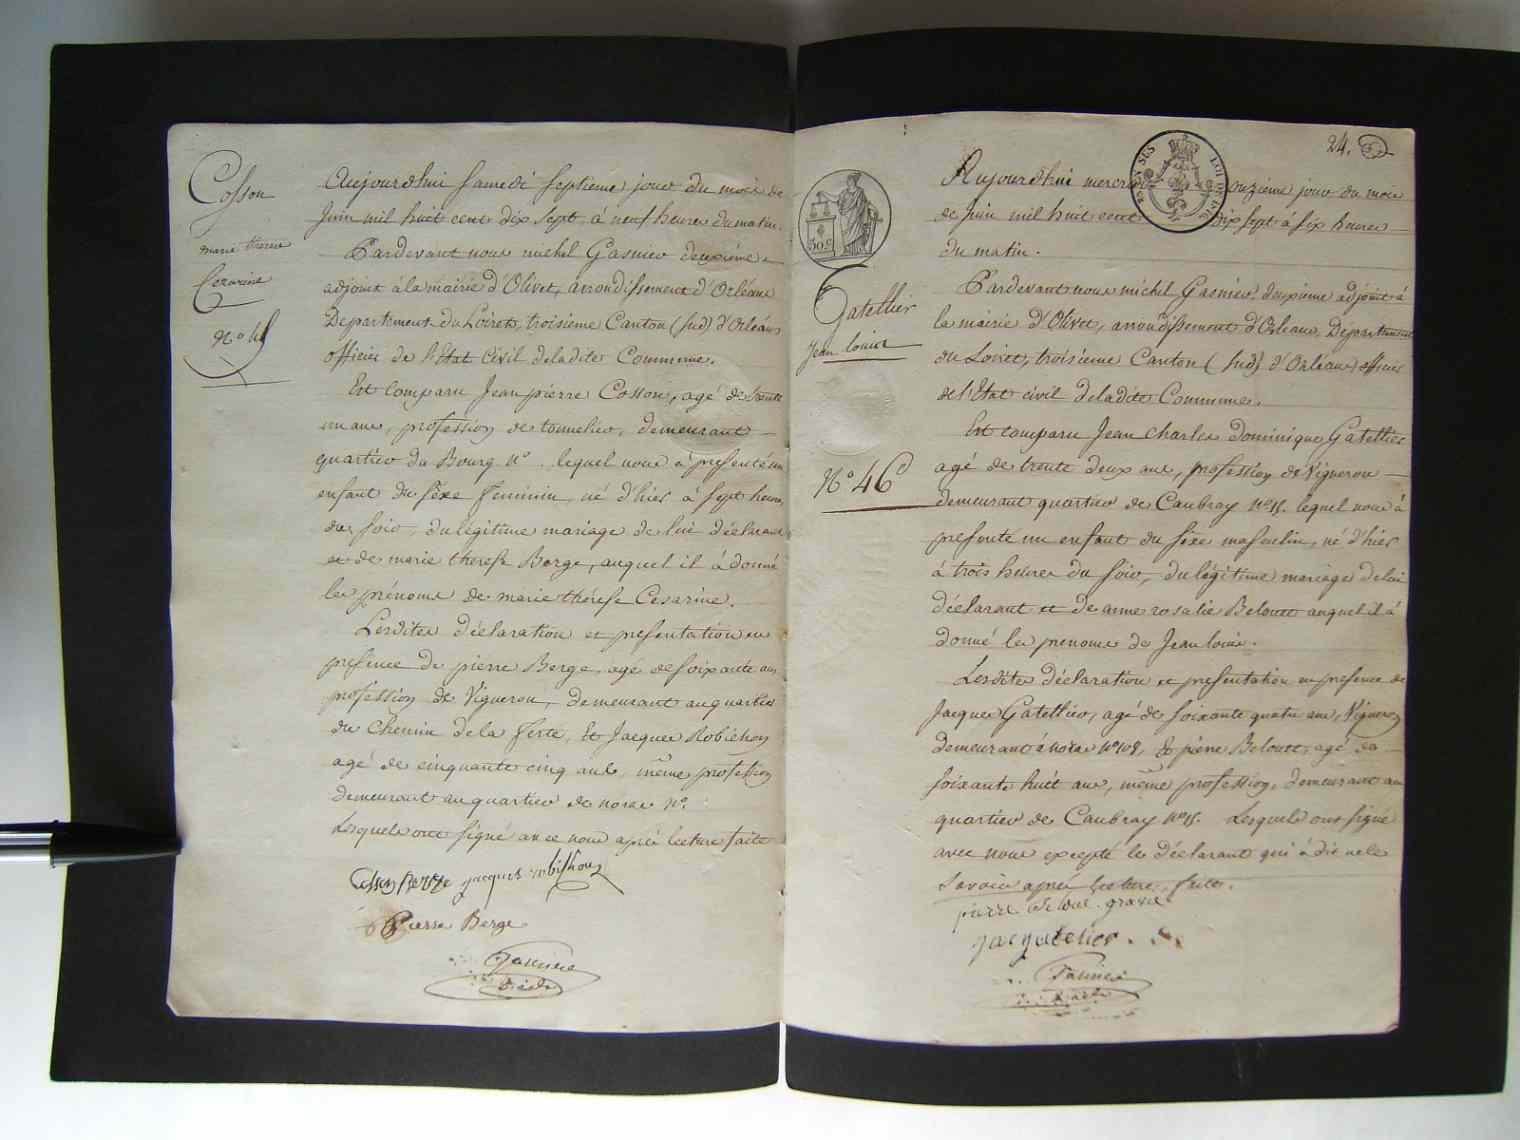 Cosson
marie therese
Cezarine
N° 45
Aujourdhui samedi septieme jour du mois de
Juin mil huit cent dix sept à neuf heures du matin.
Pardevant nous michel Gasnier deuxième
adjoint à la mairie d'Olivet, arrondissement d'Orléans
Departement du Loiret, troisieme Canton (sud) d'Orléans
officier de l'Etat Civil deladite Commune.
Est comparu Jean pierre Cosson, agé de trente
un ans, profession de tonnelier, demeurant
quartier du Bourg n° . lequel nous à présenté un
enfant du séxe feminin, né d'hier à sept heures
du soir, du légitime mariage de lui déclarant
et de marie therese Berge, auquel il à donné
les prénoms de marie thérese Cesarine.
Lesdites déclaration et presentation en
presence de pierre Berge, agé de soixante ans
profession de Vigneron, demeurant au quartier
du Chemin de la ferté, Et Jacques Robichon
agé de cinquante cinq ans, même profession
demeurant au quartier de noras n°.
Lesquels ont signé avec nous après lecture faite
Cosson Berge jacques robichon
Pierre Berge
Gasnier
24.
30 c
Gatellier
Jean louis
N° 46
Aujourdhui mercredi onzième jour du mois
de juin mil huit cent dix sept à six heures
du matin.
Pardevant nous michel Gasnier deuxième adjoint à
la mairie d'Olivet, arrondissement d'Orleans, Departement
du Loiret, troisieme Canton (sud) d'Orléans officier
de l'Etat civil deladite Commune.
Est comparu Jean Charles dominique Gatellier
agé de trente deux ans, profession de Vigneron
demeurant quartier de Caubray n° 15. lequel nous à
présenté un enfant du séxe masculin, né d'hier
à trois heures du soir, du légitime mariage de lui
déclarant et de anne rosalie Belouet auquel il à
donné les prenoms de Jean louis.
Lesdites déclaration et presentation en presence de
Jacques Gatellier, agé de soixante quatre ans, Vigneron
demeurant à noras n° 108, Et pierre Belouet, agé de
soixante huit ans, même profession, demeurant au
quartier de Caubray n° 15. Lesquels ont signé
avec nous excepté le déclarant qui à dit ne le
savoir après lecture faite.
pierre
jacques
Gasnier